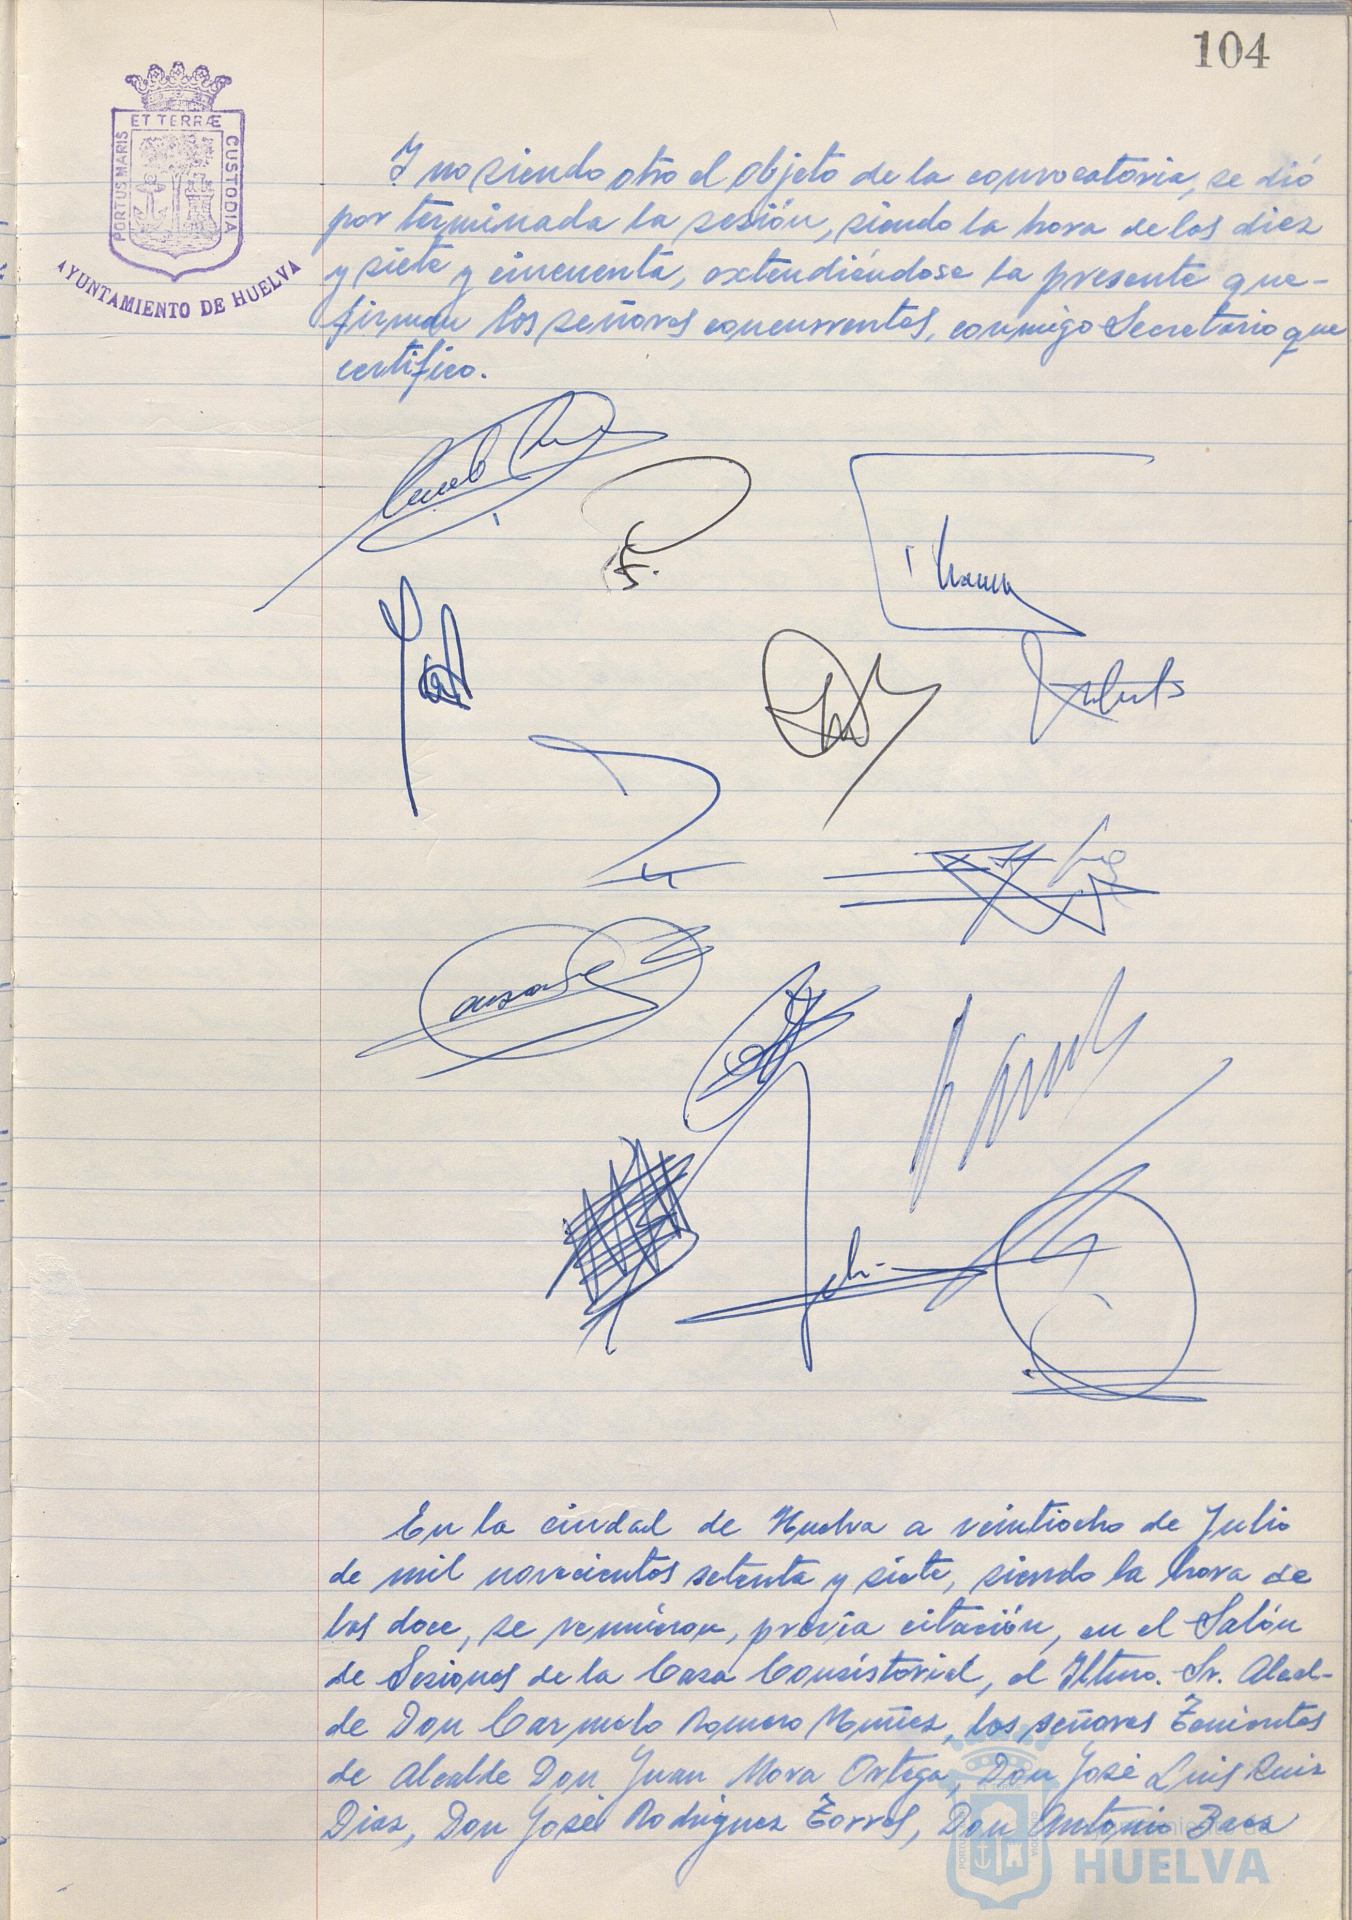 104
ET TERRÆ
PORTUS MARIS
CUSTODIA
AYUNTAMIENTO DE HUELVA
Y no siendo otro el objeto de la convocatoria, se dió
por terminada la sesión, siendo la hora de las diez
y siete y cincuenta, extendiéndose la presente que-
firman los señores concurrentes, conmigo Secretario que
certifico.
En la ciudad de Huelva a veintiocho de Julio
de mil novecientos setenta y siete, siendo la hora de
las doce, se reunieron, previa citación, en el Salón
de Sesiones de la Casa Consistorial, el Iltmo. Sr. Alcal-
de Don Carmelo Romero Muñoz, los señores Tenientes
de Alcalde Don Juan Mora Ortega, Don José Luis Ruiz
Diaz, Don José Rodriguez Torres, Don Antonio Baea
HUELVA